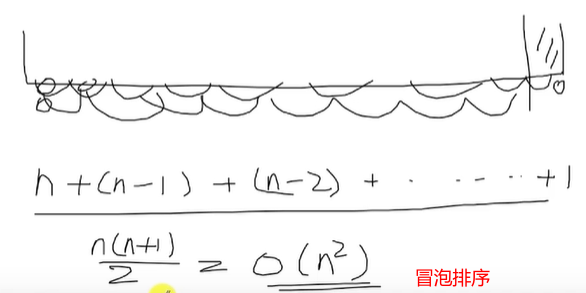 n + (n-1) + (n-2) + · · - - · + 1
n(n+1)/2 = O(n²)
冒泡排序